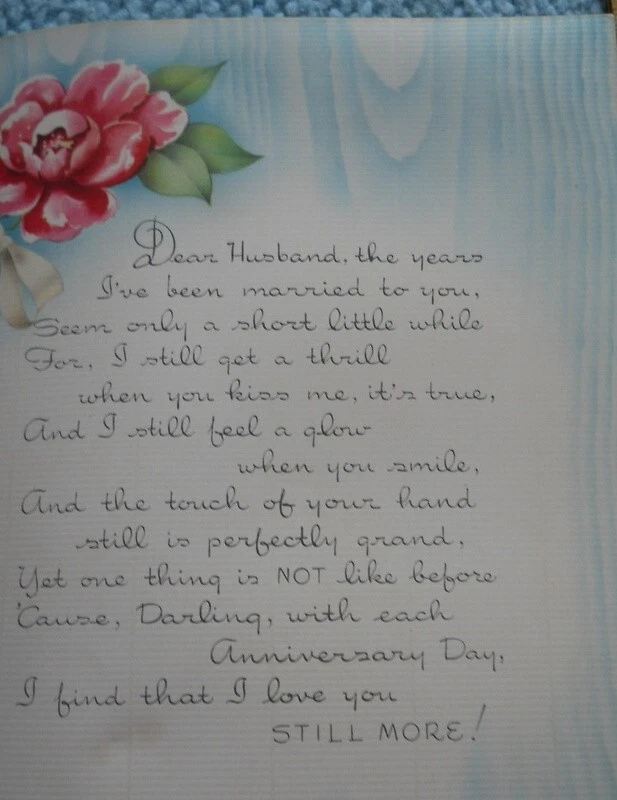 Dear Husband, the years
I've been married to you,
Seem only a short little while
For, I still get a thrill
when you kiss me, it's true,
And I still feel a glow
when you smile,
And the touch of your hand
still is perfectly grand,
Yet one thing is NOT like before
'Cause, Darling, with each
Anniversary Day,
I find that I love you
STILL MORE!